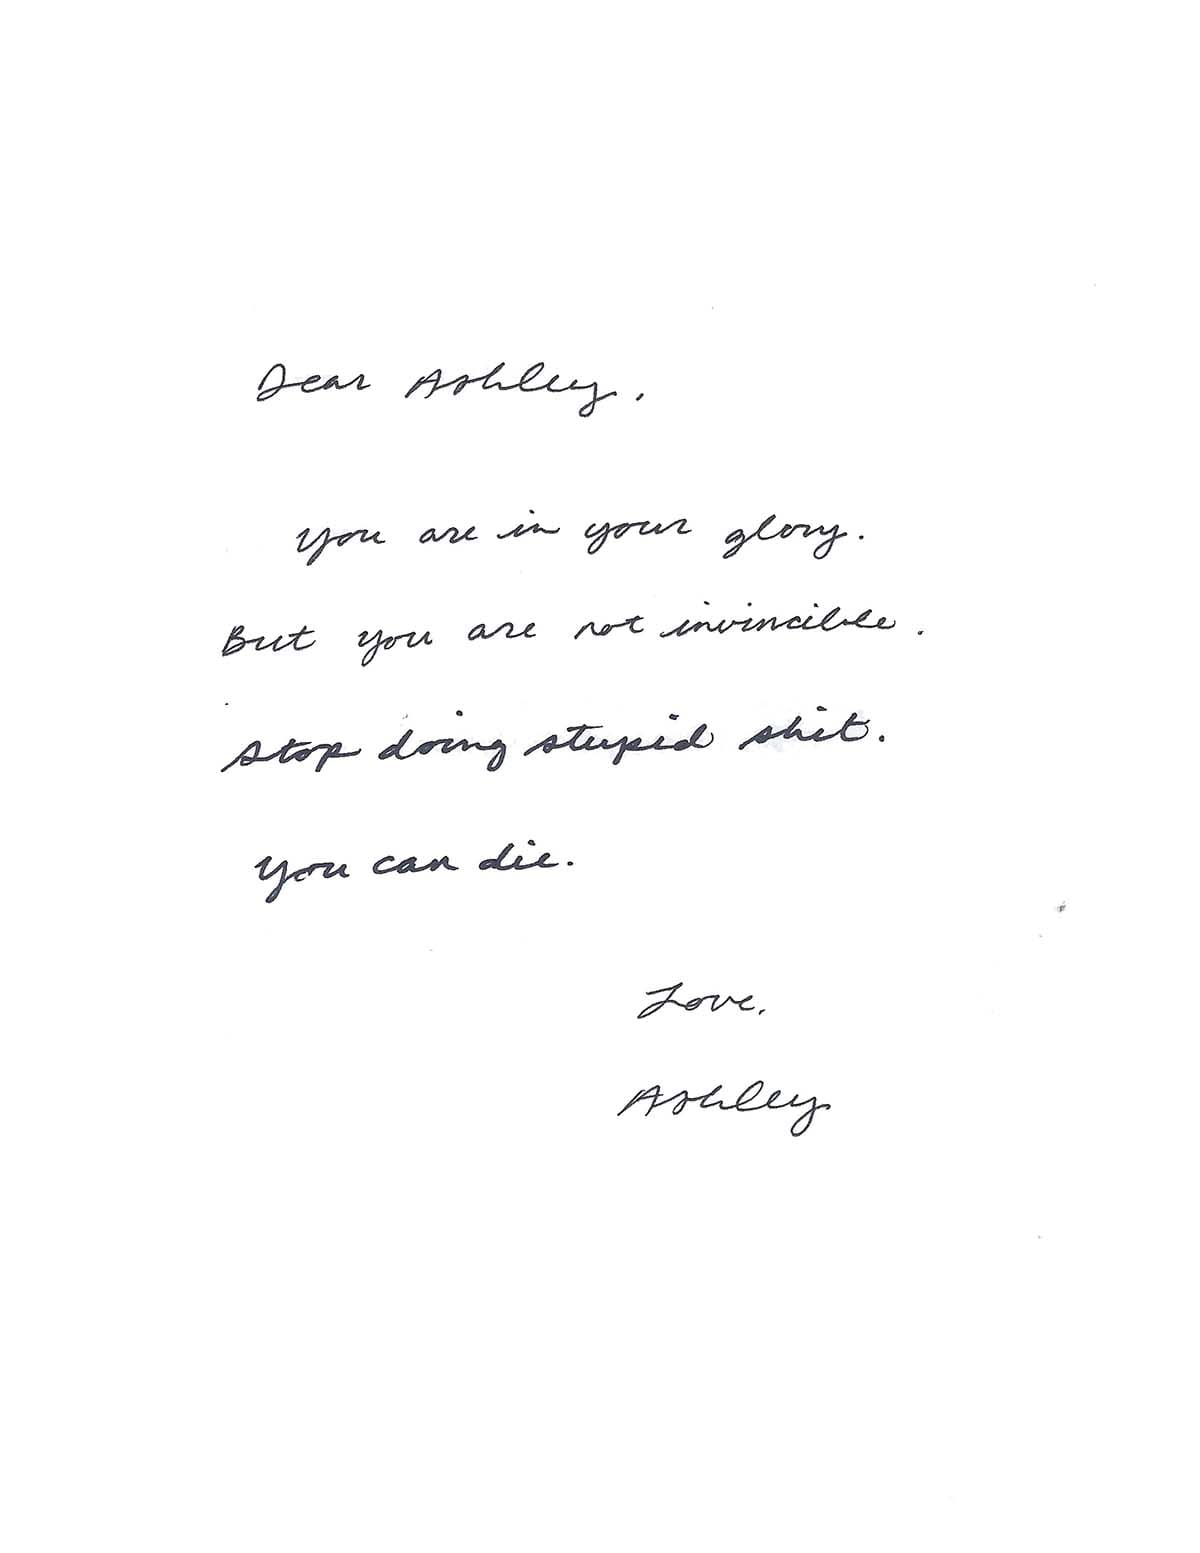 Dear Ashley,
You are in your glory.
But you are not invincible.
Stop doing stupid shit.
You can die.
Love,
Ashley